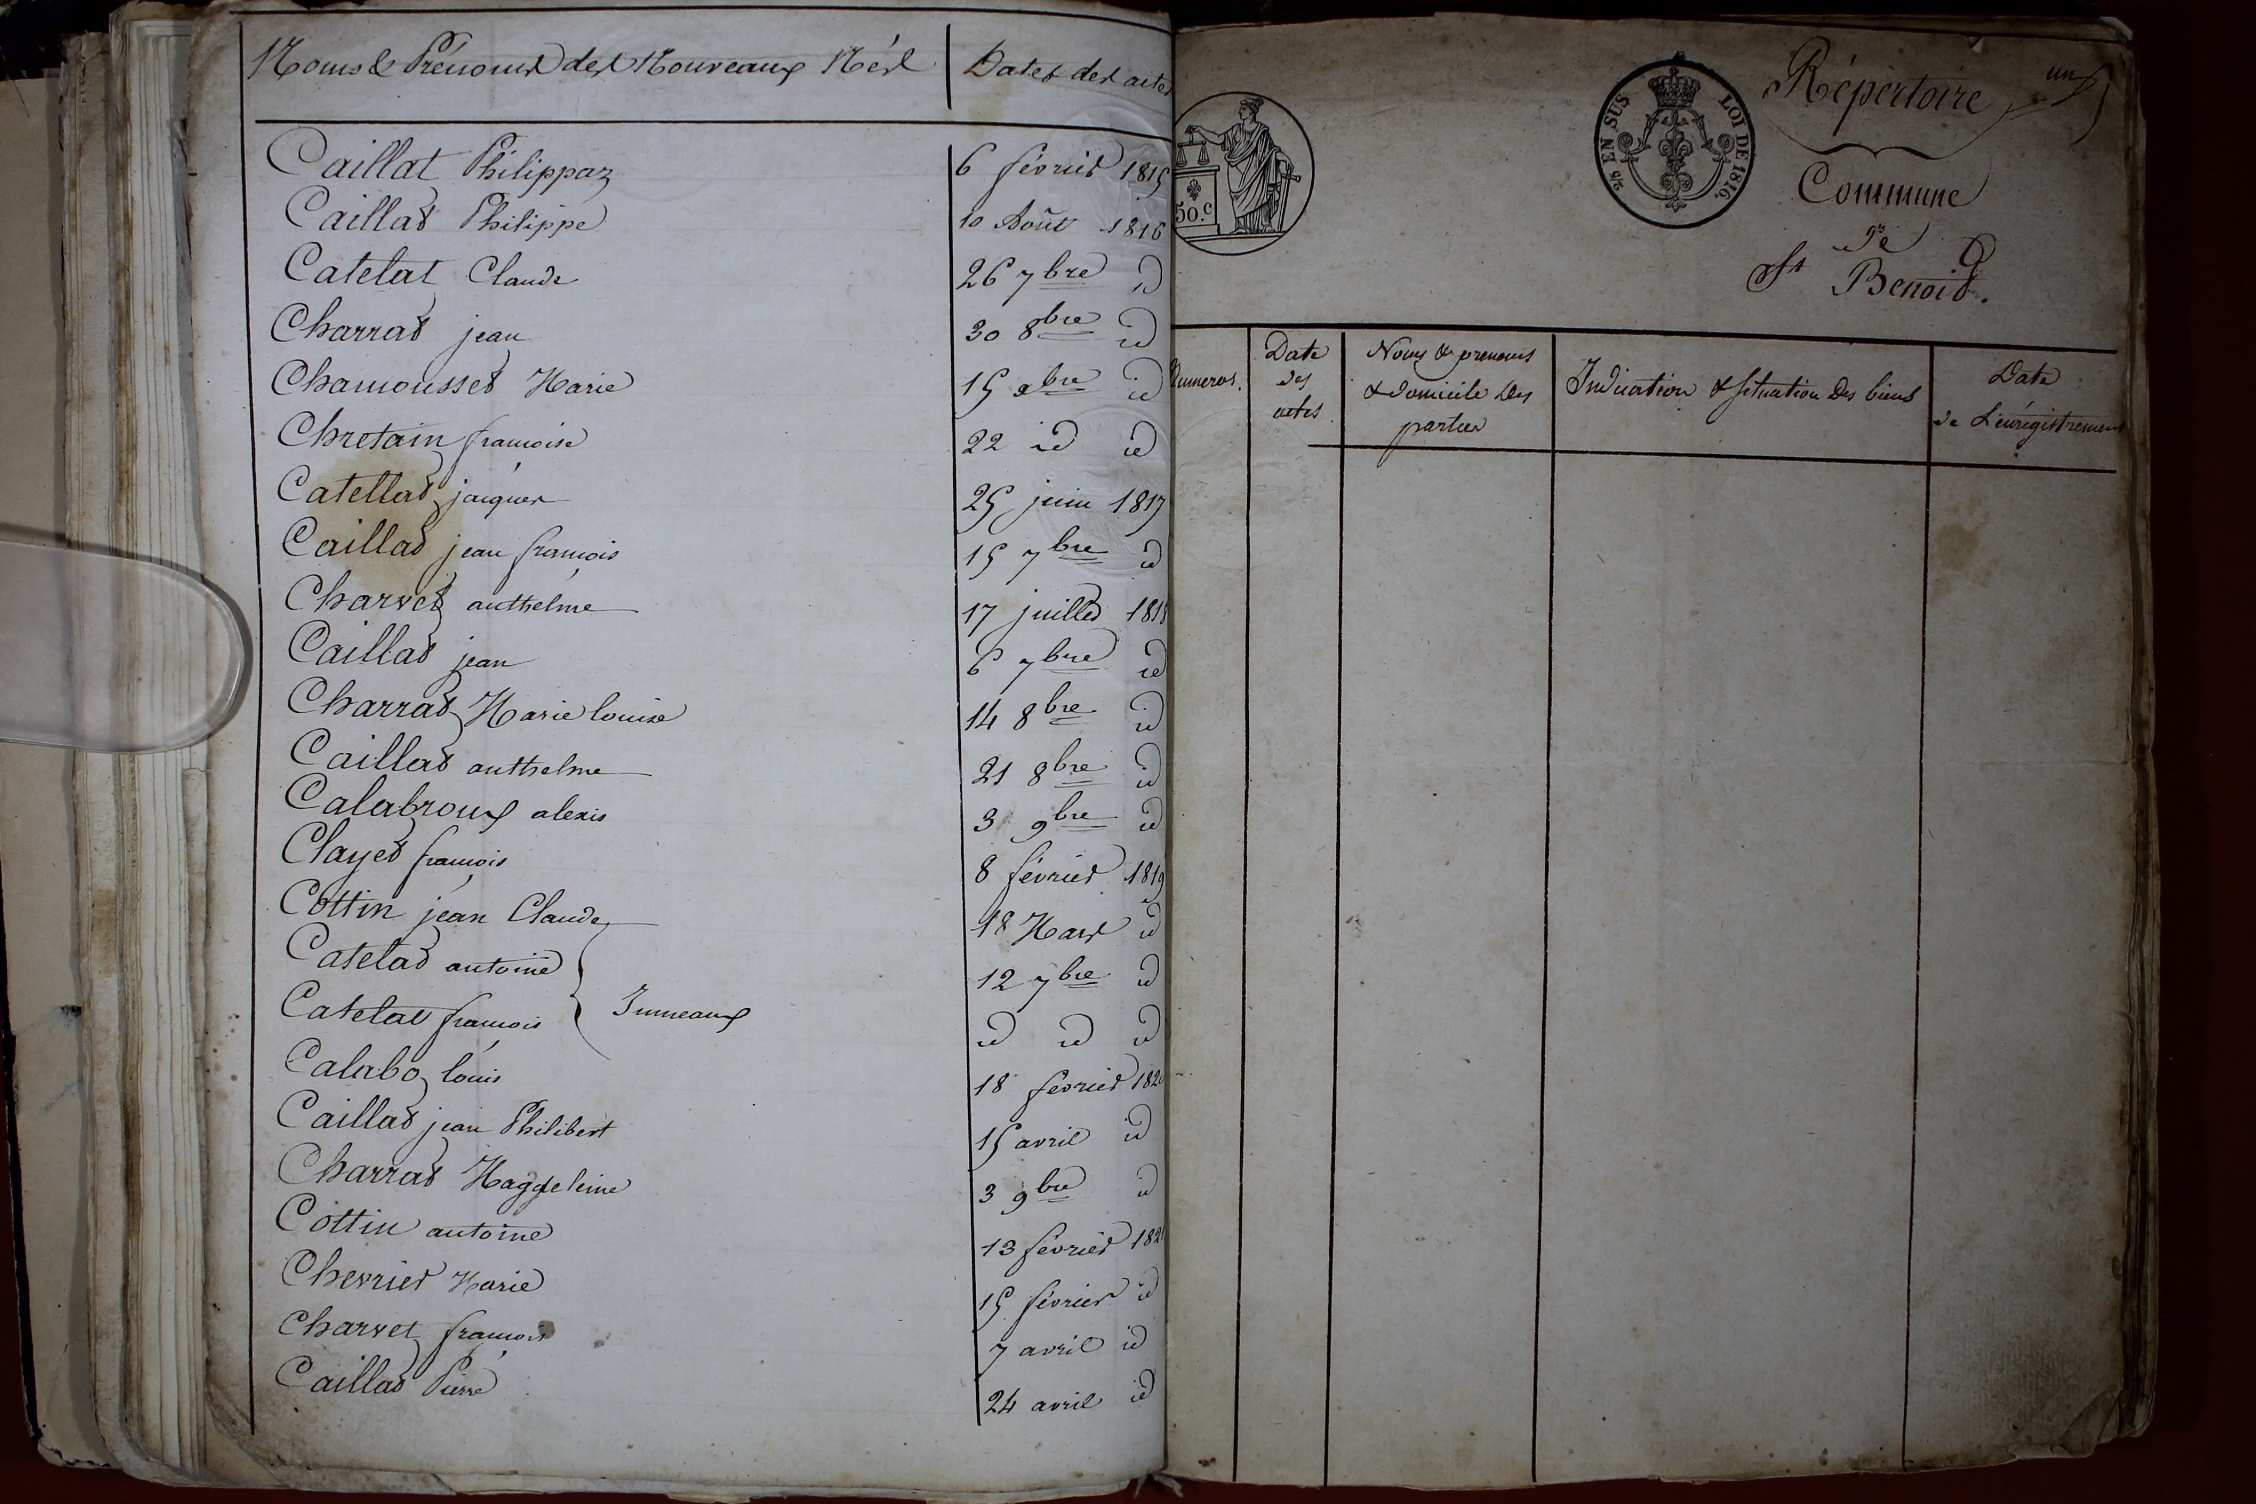 Noms & Prénoms des Nouveaux Nés Dates des actes
Caillat Philippaz 6 février 1815
Caillat Philippe 10 Août 1816
Catelat Claude 26 7bre id
Charrat jean 30 8bre id
Chamousset Marie 15 9bre id
Chretain françoise 22 id id
Catellat jacques 25 juin 1817
Caillat jean françois 15 7bre id
Charvet anthelme 17 juillet 1818
Caillat jean 6 7bre id
Charrat Marie louise 14 8bre id
Caillat anthelme 21 8bre id
Calabroux alexis 3 9bre id
Clayet françois 8 février 1819
Cottin jean Claude 18 Mars id
Catelat antoine 12 7bre id
Catelat françois Jumeaux id id id
Calabo louis 18 février 1820
Caillat jean Philibert 15 avril id
Charrat Magdeleine 3 9bre id
Cottin antoine 13 février 1821
Chevrier Marie 15 février id
Charvet françois 7 avril id
Caillat Pierre 24 avril id
50.c
5/2 EN SUS LOI DE 1816.
Répertoire un
Commune
de
St Benoit.
Numeros.
Date
des
actes
Noms & prenoms
& domicile des
parties
Indication & situation des biens
Date
de L'enrégistrement